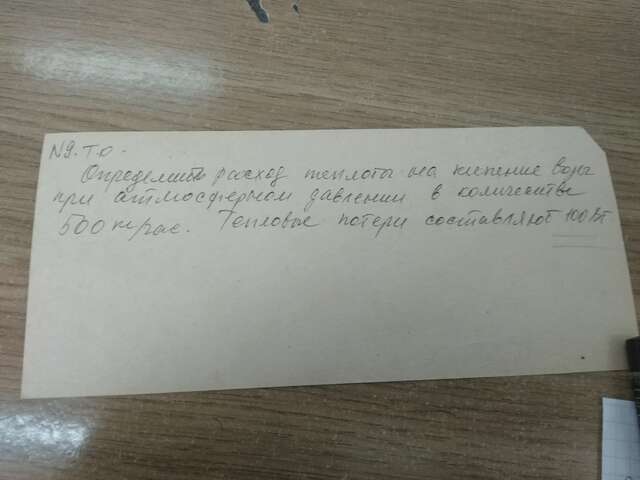 N9. Т.О.
Определить расход теплоты на кипение воды
при атмосферном давлении в количестве
500 кг/час. Тепловые потери составляют 100 Вт